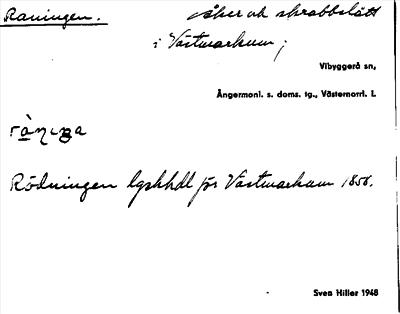 Raningen. åker och skrabbslått
i Västmarkum;
Vibyggerå sn,
Ångermanl. s. doms. tg., Västernorrl. l.
Rödningen lgskhdl för Västmarkum 1856.
Sven Hiller 1948